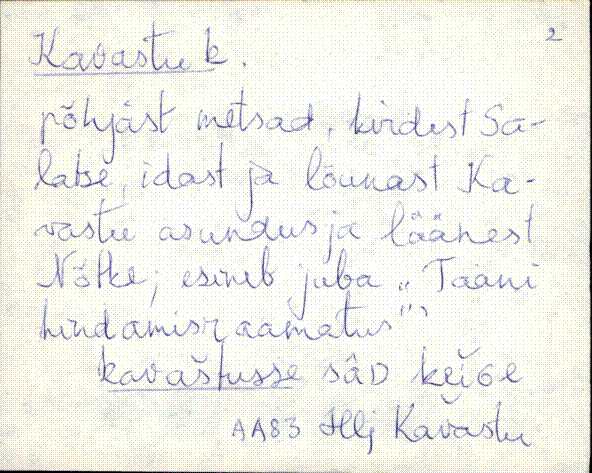 2
Kavastu k.
põhjast metsad, kirdest Sa-
latse, idast ja lõunast Ka-
vastu asundus ja läänest
Nõtke; esineb juba „Taani
hindamisraamatus”.
kavaštusse sâD kejGe
AA83 Hlj Kavastu